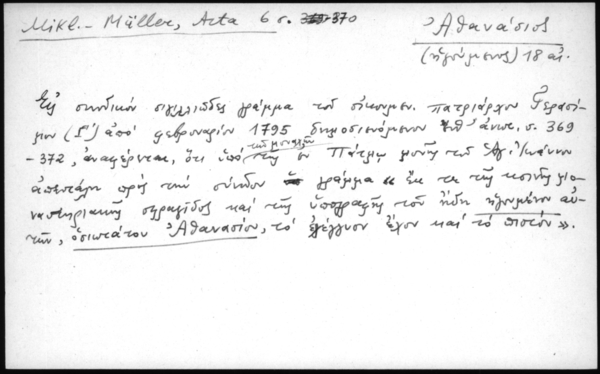 Mikl. - Müller, Acta 6 σ. 370
Ἀθανάσιος
(ἡγούμενος) 18 αἰ.
Εἰς συνοδικόν σιγιλλιῶδες γράμμα τοῦ οἰκουμεν. πατριάρχου Γερασί-
μου (Γ') ἀπό φεβρουαρίου 1795 δημοσιευόμενον ἀνωτ. σ. 369
-372, ἀναφέρεται, ὅτι ὑπό τῶν μοναχῶν τῆς ἐν Πάτμῳ μονῆς τοῦ Ἁγ. Ἰωάννου
ἀπεστάλη πρός τήν σύνοδον γράμμα « ἔκ τε τῆς κοινῆς μο-
ναστηριακῆς σφραγῖδος καί τῆς ὑπογραφῆς τοῦ ἤδη ἡγουμένου αὐ-
τῶν, ὁσιωτάτου Ἀθανασίου, τό ἐχέγγυον ἔχον καί τό πιστόν ».